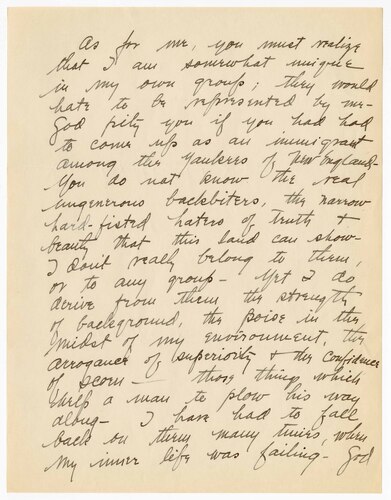 As for me, you must realize
that I am somewhat unique
in my own group; they would
hate to be represented by me-
God pity you if you had had
to come up as an immigrant
among the Yankees of New England-
You do not know the real
ungenerous backbiters, the narrow
hard-fisted haters of truth +
beauty that this land can show-
I don't really belong to them,
or to any group- Yet I do
derive from them the strength
of background, the poise in the
midst of my environment, the
arrogance of superiority + the confidence
of scorn- those things which
help a man to plow his way
along- I have had to fall
back on them many times, when
my inner life was failing- God